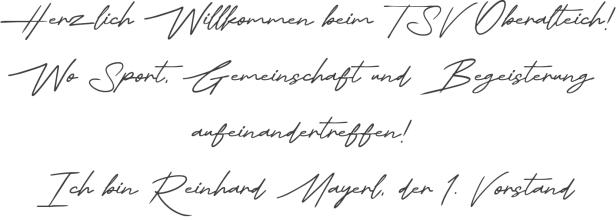 Herzlich Willkommen beim TSV Oberalteich!
Wo Sport, Gemeinschaft und Begeisterung
aufeinandertreffen!
Ich bin Reinhard Mayerl, der 1. Vorstand